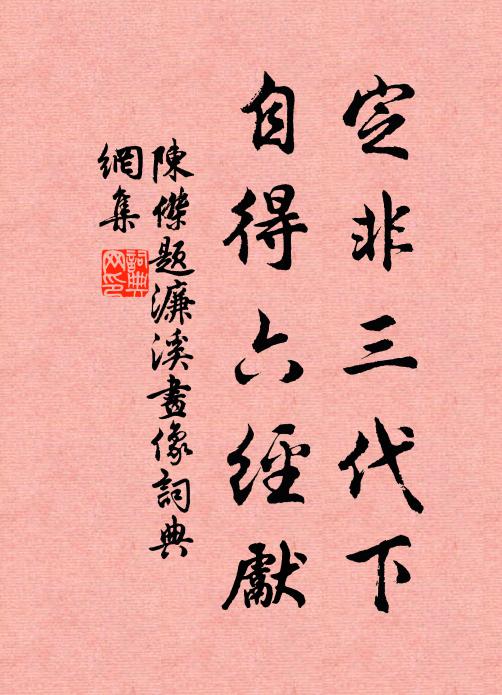 定非三代下
自得六經獻
陳傑題濂溪畫像詞典
網集
詞典
網印